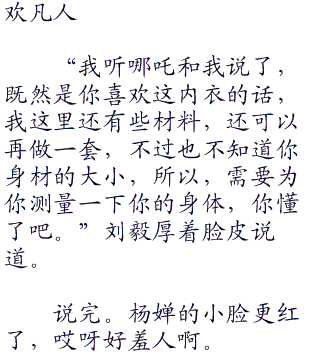 欢凡人
“我听哪吒和我说了，
既然是你喜欢这内衣的话，
我这里还有些材料，还可以
再做一套，不过也不知道你
身材的大小，所以，需要为
你测量一下你的身体，你懂
了吧。”刘毅厚着脸皮说
道。
说完。杨婵的小脸更红
了，哎呀好羞人啊。